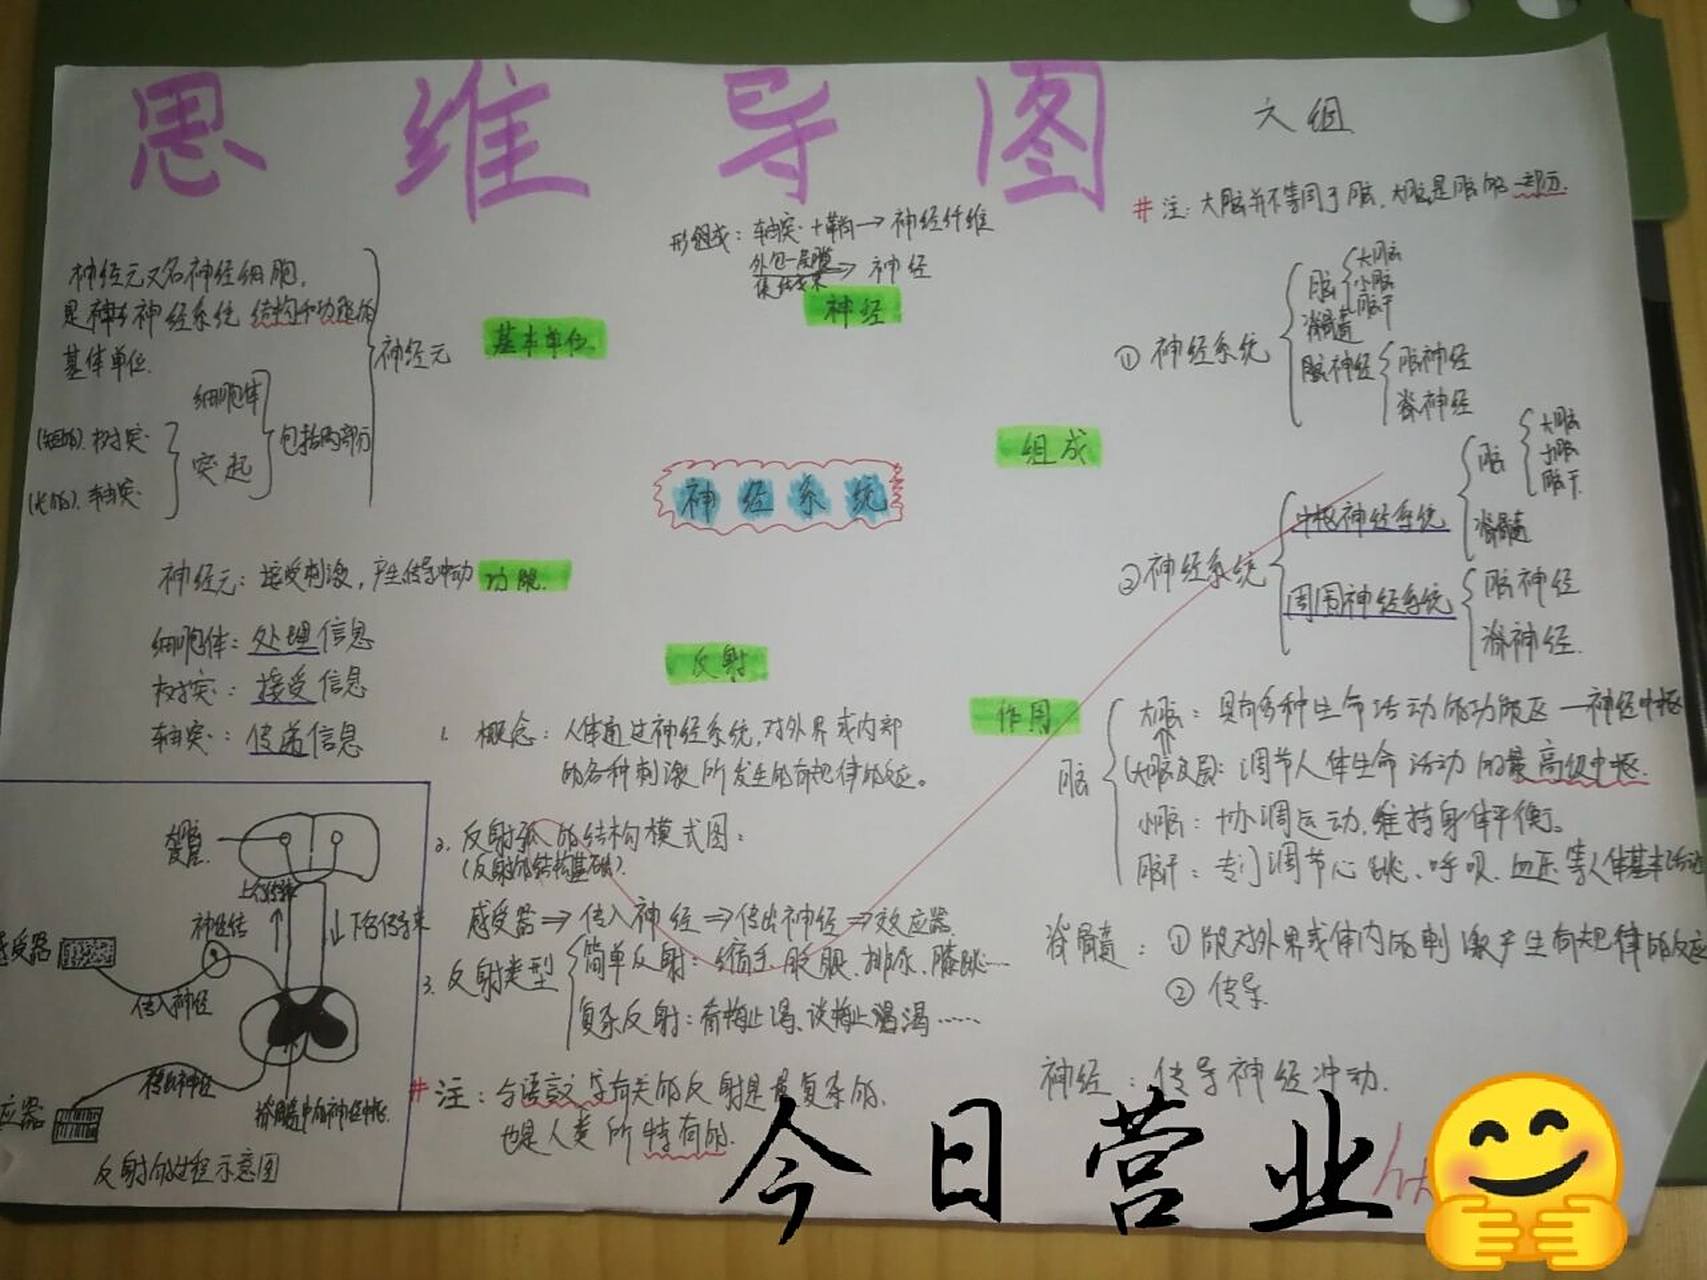 思维导图
六组
#注：大脑并不等同于脑，大脑是脑的一部分.
形组成：轴突+鞘→神经纤维
外包一层膜
集结成束
→神经
神经
神经元又名神经细胞，
是神经系统结构和功能的
基体单位.
神经元
基本单位
细胞体
突起
包括两部分
(短的).树突
(长的).轴突
组成
①神经系统
脑
大脑
小脑
脑干
脊髓
脑神经
脑神经
脊神经
神经系统
②神经系统
中枢神经系统
脑
大脑
小脑
脑干.
脊髓
周围神经系统
脑神经
脊神经.
神经元：接受刺激，产生传导冲动
功能.
细胞体：处理信息
树突：接受信息
轴突：传递信息
反射
1.概念：人体通过神经系统，对外界或内部
的各种刺激所发生的有规律的反应。
2.反射弧的结构模式图：
(反射的结构基础).
感受器⇒传入神经⇒传出神经⇒效应器.
3.反射类型
简单反射：缩手、眨眼、排尿、膝跳…
复杂反射：看梅止渴、谈梅止渴……
#注：与语言文字有关的反射是最复杂的，
也是人类所特有的.
作用
脑
大脑：具有多种生命活动的功能区—神经中枢
(大脑皮层)：调节人体生命活动的最高级中枢.
小脑：协调运动，维持身体平衡。
脑干：专门调节心跳、呼吸、血压等人体基本活动
脊髓：①能对外界或体内的刺激产生有规律的反应
②传导.
神经：传导神经冲动.
大脑
皮层
上行传导
下行传导束
感受器
传入神经
传出神经
脊髓中的神经中枢
应器
反射的过程示意图
今日营业